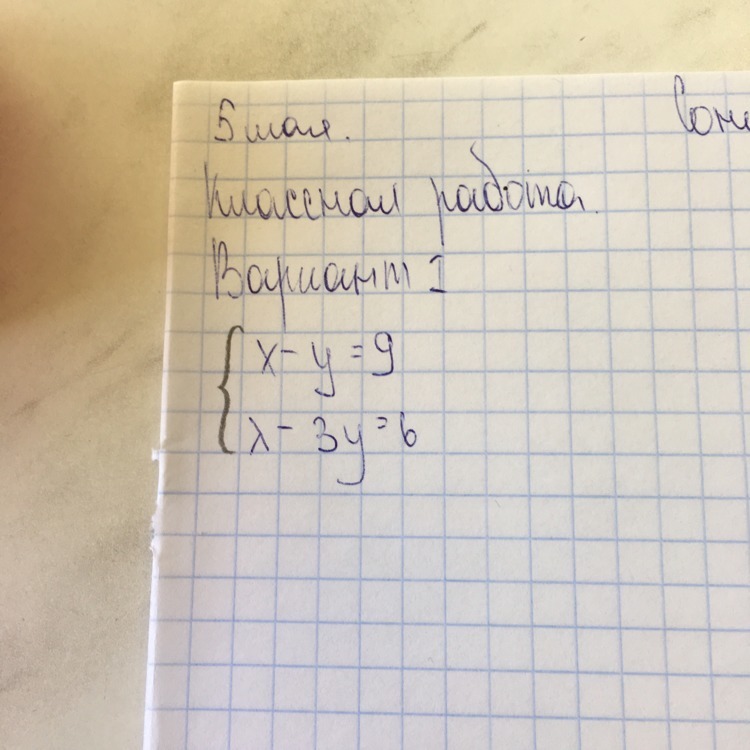 5 мая.
Классная работа.
Вариант I
x - y = 9
x - 3y = 6